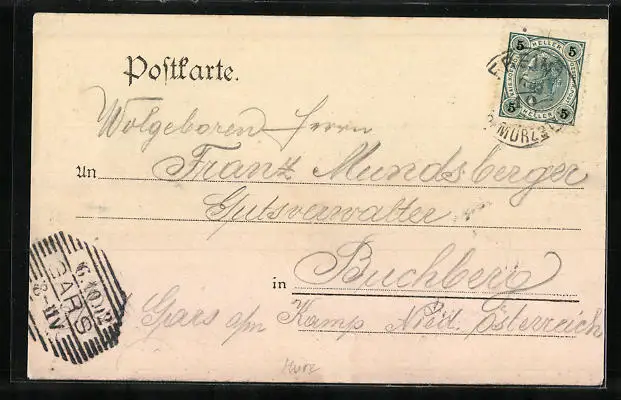 Postkarte.
5 HELLER 5
5 HELLER 5
MÜRZ
Wolgeboren Herrn
An Franz Mundsberger
Gutsverwalter
in Buchberg
Gars a/m Kamp Nied. Österreich
GARS
6.10.02
8-11V